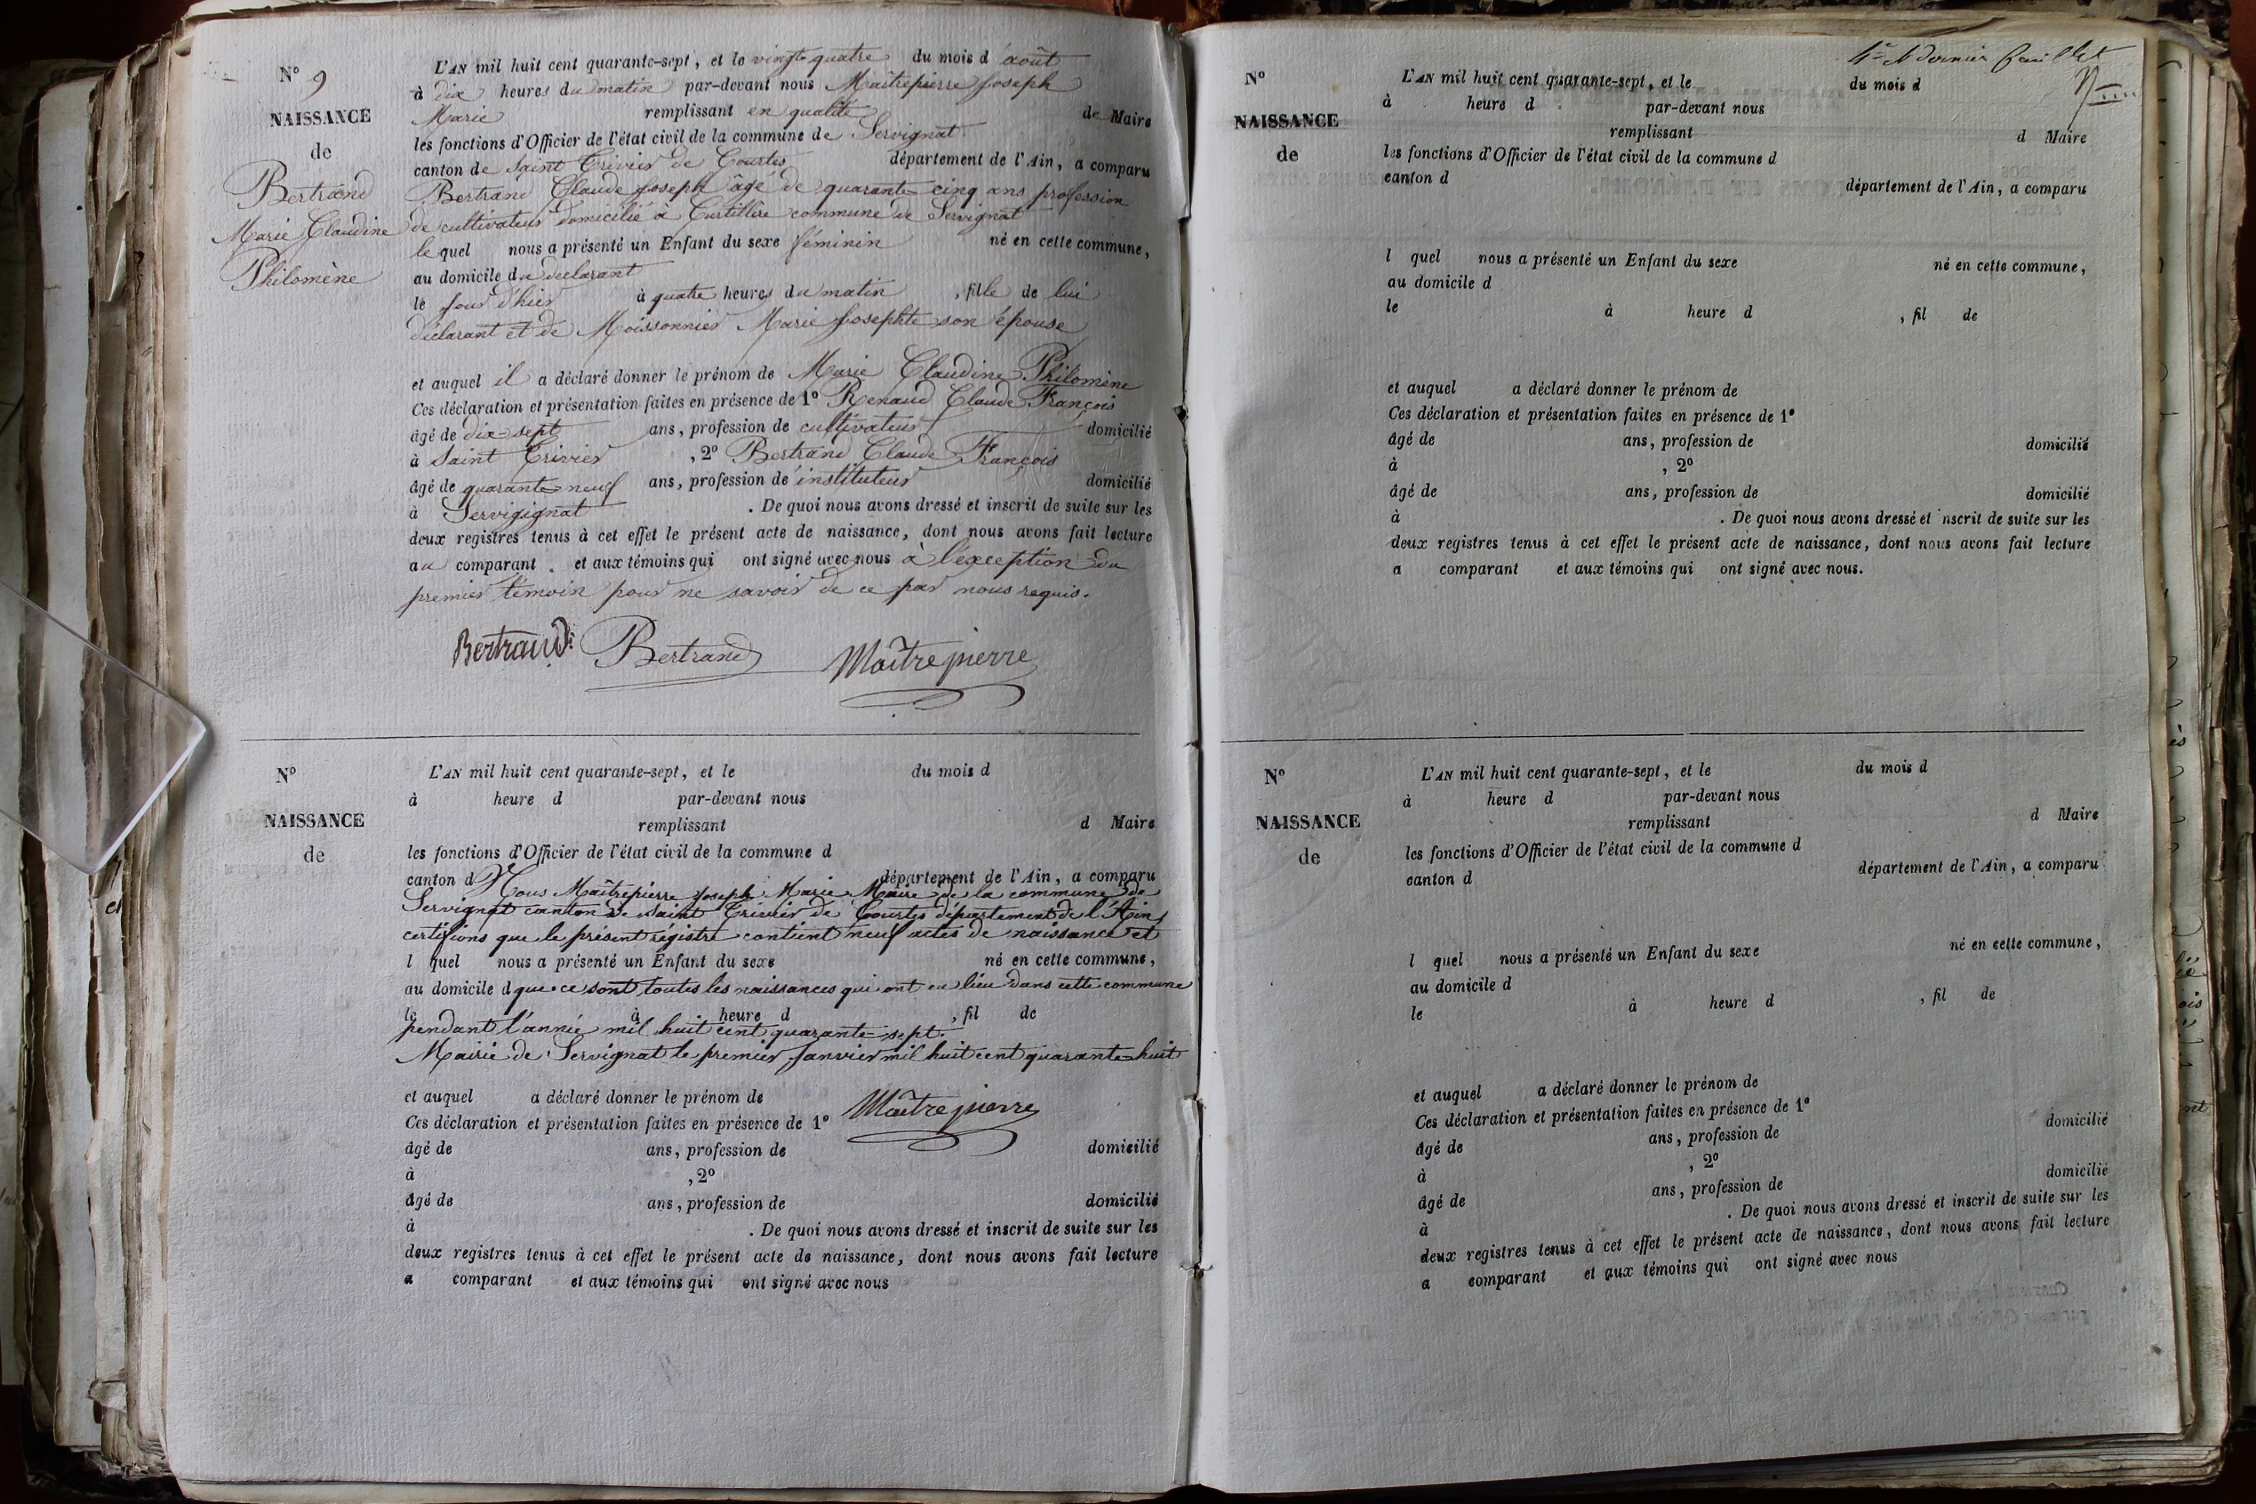 N° 9
NAISSANCE
de
Bertrand
Marie Claudine
Philomène
L'AN mil huit cent quarante-sept, et le vingt-quatre du mois d'août
à dix heures du matin par-devant nous Maîtrepierre Joseph
Marie remplissant en qualité de Maire
les fonctions d'Officier de l'état civil de la commune de Servignat
canton de Saint Trivier de Courtes département de l'Ain, a comparu
Bertrand Claude Joseph âgé de quarante cinq ans profession
de cultivateur domicilié à Curtillire commune de Servignat
lequel nous a présenté un Enfant du sexe féminin né en cette commune,
au domicile du déclarant
le jour d'hier à quatre heures du matin, fille de lui
déclarant et de Moissonnier Marie Josephte son épouse
et auquel il a déclaré donner le prénom de Marie Claudine Philomène
Ces déclaration et présentation faites en présence de 1° Renaud Claude François
âgé de dix sept ans, profession de cultivateur domicilié
à Saint Trivier, 2° Bertrand Claude François
âgé de quarante neuf ans, profession de instituteur domicilié
à Servigignat. De quoi nous avons dressé et inscrit de suite sur les
deux registres tenus à cet effet le présent acte de naissance, dont nous avons fait lecture
au comparant. et aux témoins qui ont signé avec nous à l'exception du
premier témoin pour ne savoir de ce par nous requis.
Bertrand Bertrand Maîtrepierre
N°
NAISSANCE
de
L'AN mil huit cent quarante-sept, et le du mois d
à heure d par-devant nous
remplissant d Maire
les fonctions d'Officier de l'état civil de la commune d
canton d département de l'Ain, a comparu
Nous Maîtrepierre Joseph Marie Maire de la commune de
Servignat canton de Saint Trivier de Courtes département de l'Ain
certifions que le présent régistre contient neuf actes de naissance et
l quel nous a présenté un Enfant du sexe né en cette commune,
au domicile d que ce sont toutes les naissances qui ont eu lieu dans cette commune
le à heure d , fil de
pendant l'année mil huit cent quarante-sept.
Mairie de Servignat le premier Janvier mil huit cent quarante huit
et auquel a déclaré donner le prénom de
Maîtrepierre
Ces déclaration et présentation faites en présence de 1°
âgé de ans, profession de domicilié
à , 2°
âgé de ans, profession de domicilié
à . De quoi nous avons dressé et inscrit de suite sur les
deux registres tenus à cet effet le présent acte de naissance, dont nous avons fait lecture
a comparant et aux témoins qui ont signé avec nous
4e et dernier feuillet
N°
NAISSANCE
de
L'AN mil huit cent quarante-sept, et le du mois d
à heure d par-devant nous
remplissant d Maire
les fonctions d'Officier de l'état civil de la commune d
canton d département de l'Ain, a comparu
l quel nous a présenté un Enfant du sexe né en cette commune,
au domicile d
le à heure d , fil de
et auquel a déclaré donner le prénom de
Ces déclaration et présentation faites en présence de 1°
âgé de ans, profession de domicilié
à , 2°
âgé de ans, profession de domicilié
à . De quoi nous avons dressé et nscrit de suite sur les
deux registres tenus à cet effet le présent acte de naissance, dont nous avons fait lecture
a comparant et aux témoins qui ont signé avec nous.
N°
NAISSANCE
de
L'AN mil huit cent quarante-sept, et le du mois d
à heure d par-devant nous
remplissant d Maire
les fonctions d'Officier de l'état civil de la commune d
canton d département de l'Ain, a comparu
l quel nous a présenté un Enfant du sexe né en cette commune,
au domicile d
le à heure d , fil de
et auquel a déclaré donner le prénom de
Ces déclaration et présentation faites en présence de 1°
âgé de ans, profession de domicilié
à , 2°
âgé de ans, profession de domicilié
à . De quoi nous avons dressé et inscrit de suite sur les
deux registres tenus à cet effet le présent acte de naissance, dont nous avons fait lecture
a comparant et aux témoins qui ont signé avec nous